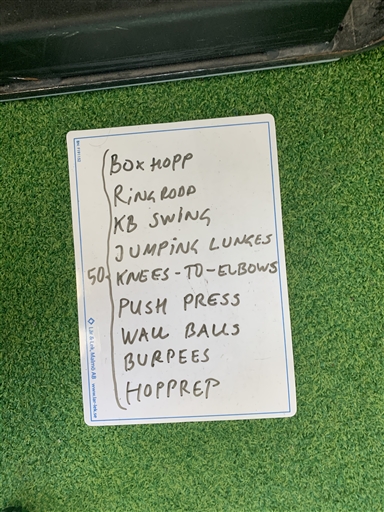 BOX HOPP
RINGRODD
KB SWING
JUMPING LUNGES
50 KNEES-TO-ELBOWS
PUSH PRESS
WALL BALLS
BURPEES
HOPPREP
Lär & Lek, Malmö AB www.lar-lek.se